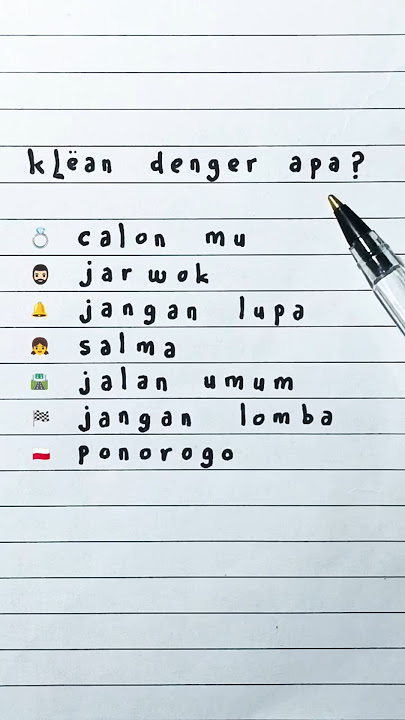 kLëan denger apa?
💍 calon mu
🧔🏻 jarwok
🔔 jangan lupa
👧 salma
🛣️ jalan umum
🏁 jangan lomba
🇵🇱 ponorogo